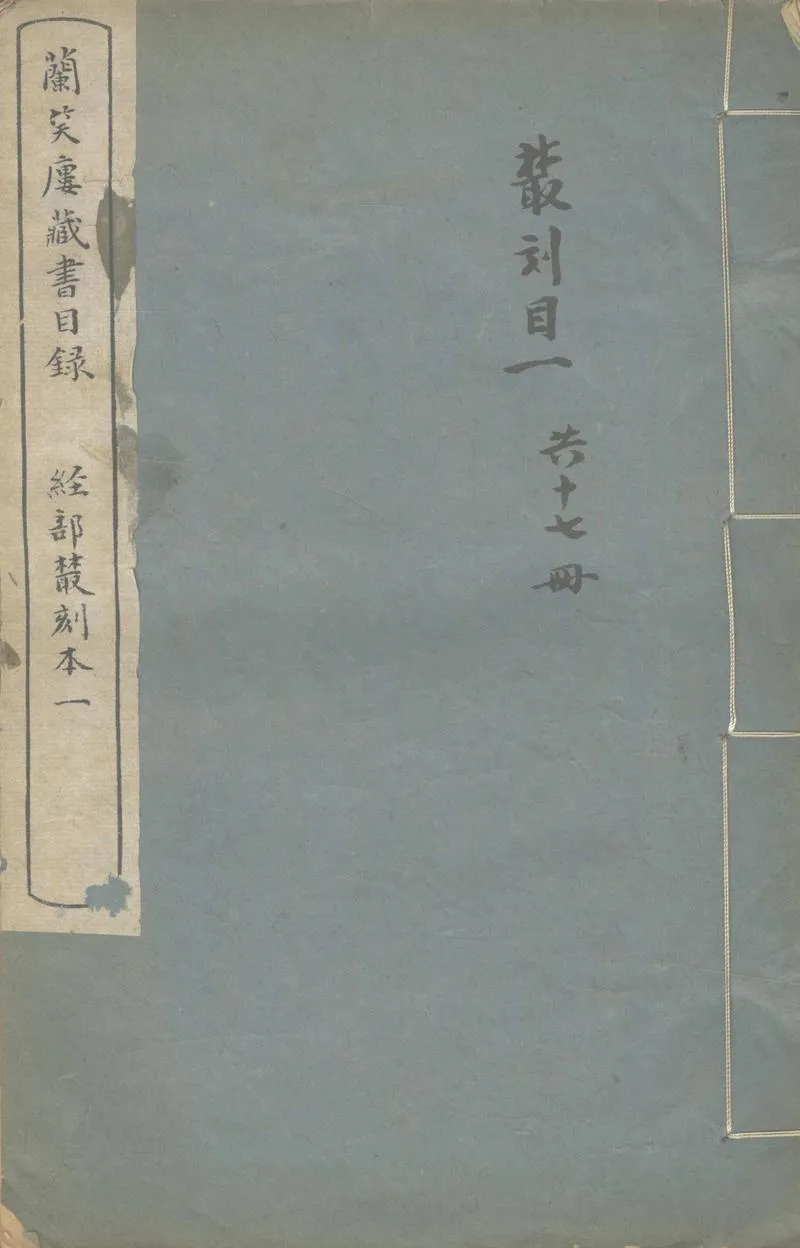 叢刻目一
共十七冊
蘭笑廔藏書目録 経部叢刻本一